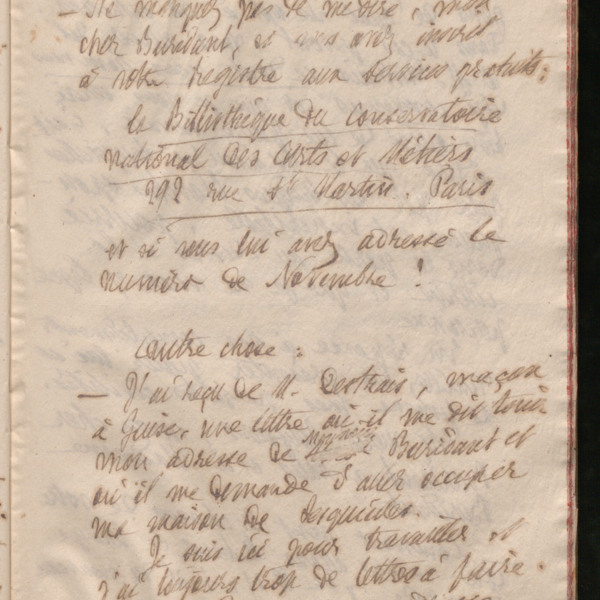 — Ne manquez pas de me dire, mon
cher Buridant, si vous avez inscrit
à votre registre aux services gratuits :
la Bibliothèque du Conservatoire
national des Arts et Métiers
292 rue St Martin. Paris
et si vous lui avez adressé le
numéro de Novembre !
Autre chose :
— J'ai reçu de M. Destrais, maçon
à Guise, une lettre où il me dit tenir
mon adresse de Buridant et
où il me demande d'aller occuper
ma maison de Lesquielles.
Je suis ici pour travailler et
j'ai toujours trop de lettres à faire.